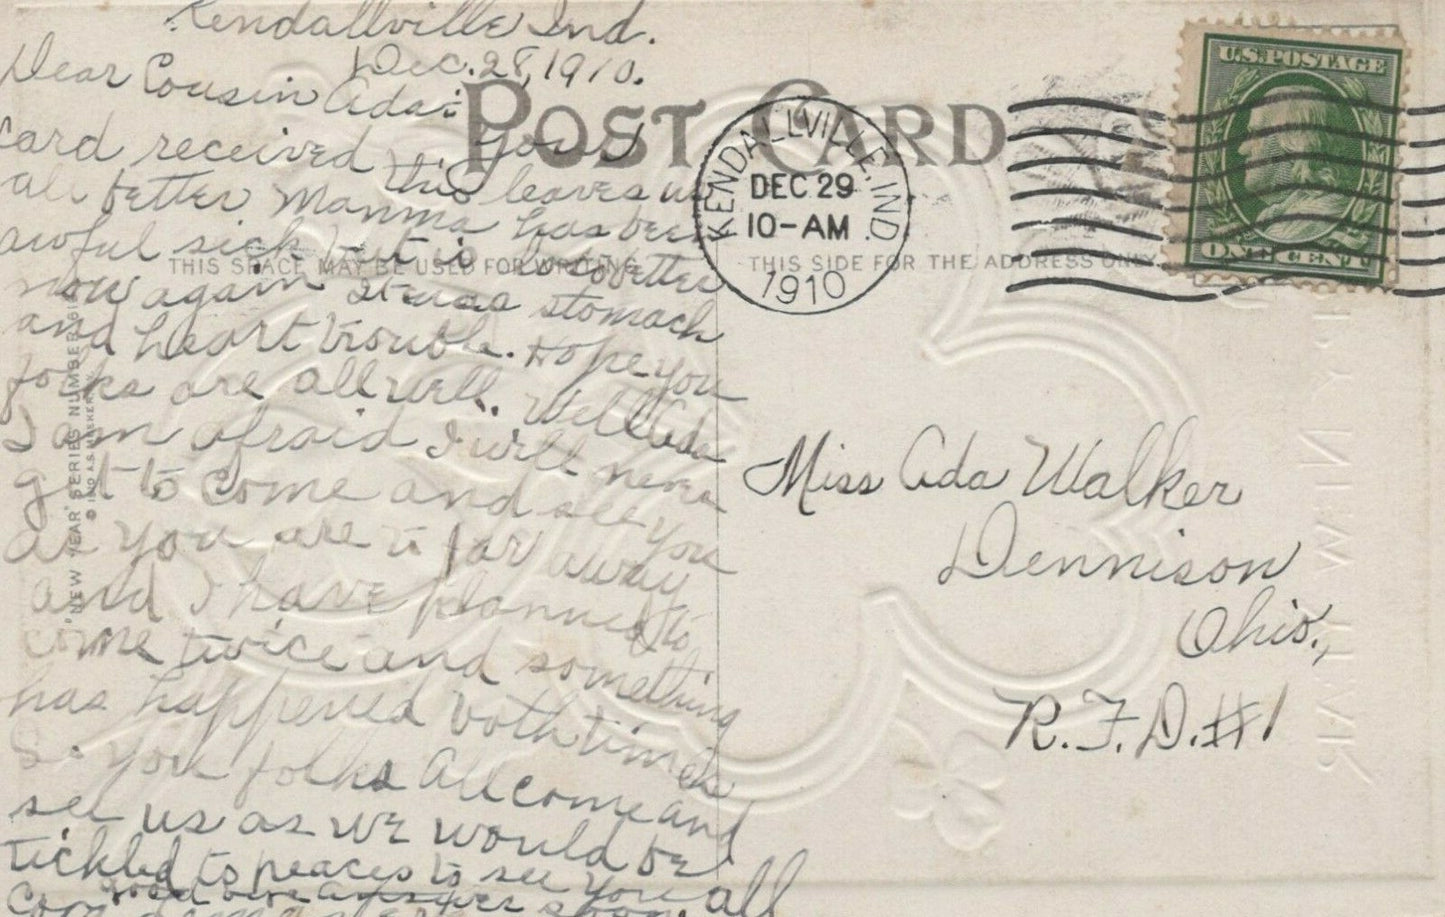 Kendallville Ind.
Dec. 28, 1910.
Dear Cousin Ada:
Your
card received this leaves us
all better. Mamma has been
awful sick but is lots better
now again It was stomach
and heart trouble. Hope you
folks are all well. Well Ada
I am afraid I will never
get to come and see you
as you are to far away
and I have planned to
come twice and something
has happened both times
So you folks all come and
see us as we would be
tickled to peaces to see you all
good bye answer soon.
POST CARD
THIS SPACE MAY BE USED FOR WRITING
THIS SIDE FOR THE ADDRESS ONLY
KENDALLVILLE, IND.
DEC 29
10-AM
1910
U.S. POSTAGE
ONE CENT
Miss Ada Walker
Dennison
Ohio.,
R.F.D. #1
"NEW YEAR" SERIES NUMBER